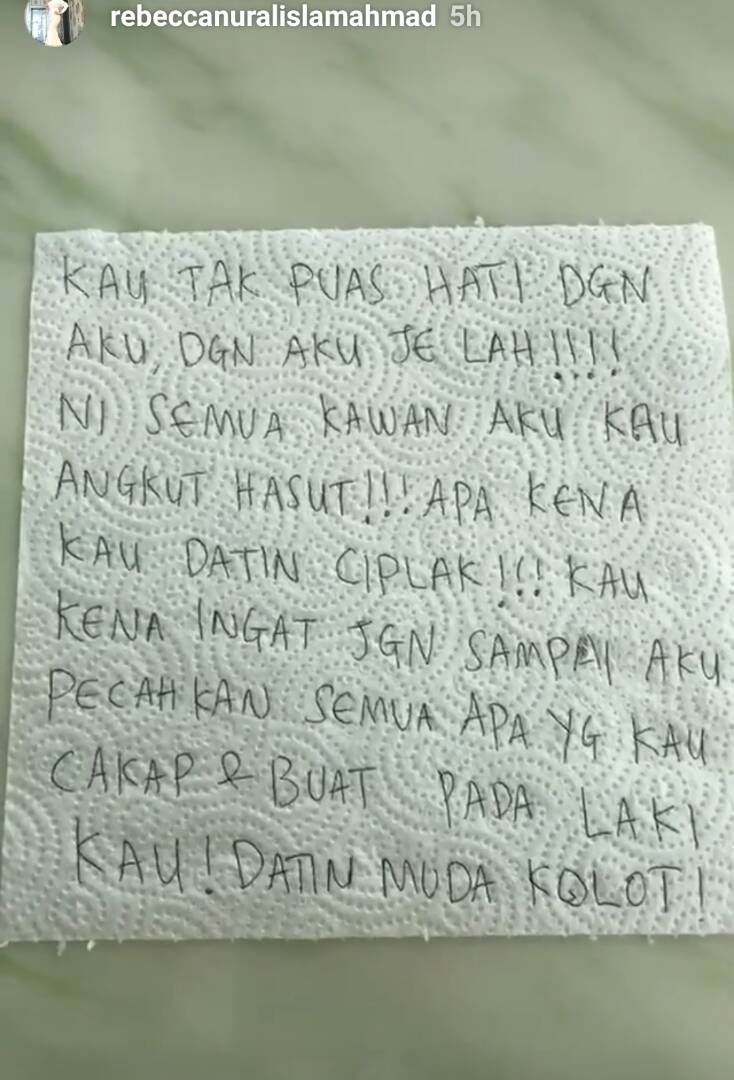 rebeccanuralislamahmad 5h
KAU TAK PUAS HATI DGN
AKU, DGN AKU JE LAH!!!!
NI SEMUA KAWAN AKU KAU
ANGKUT HASUT!!! APA KENA
KAU DATIN CIPLAK!!! KAU
KENA INGAT JGN SAMPAI AKU
PECAHKAN SEMUA APA YG KAU
CAKAP & BUAT PADA LAKI
KAU! DATIN MUDA KOLOT!